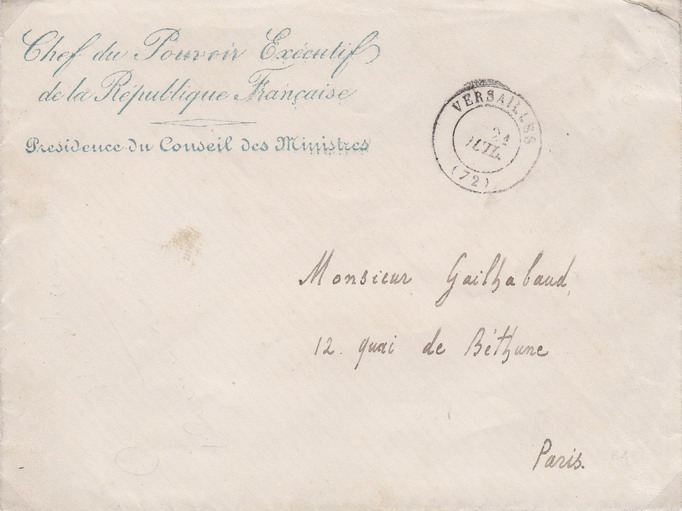 Chef du Pouvoir Exécutif
de la République Française
Présidence du Conseil des Ministres
VERSAILLES
JUIL.
(72)
Monsieur Gailhabaud,
12. quai de Béthune
Paris.